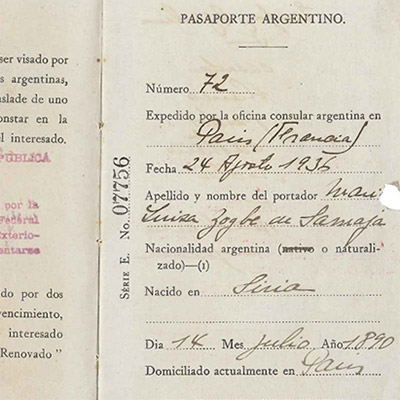 PASAPORTE ARGENTINO.
Número 72
Expedido por la oficina consular argentina en
Paris (Francia)
Fecha 24 Agosto 1936
Apellido y nombre del portador
Luisa Zogbe de Samaja
Nacionalidad argentina (nativo o naturali-
zado)—(1)
Nacido en Siria
Dia 14 Mes Julio Año 1890
Domiciliado actualmente en Paris
SÉRIE E. No. 07756
ser visado por
s argentinas,
aslade de uno
onstar en la
l interesado.
PÚBLICA
por la
Federal
xterio-
entarse
do por dos
vencimiento,
interesado
Renovado "